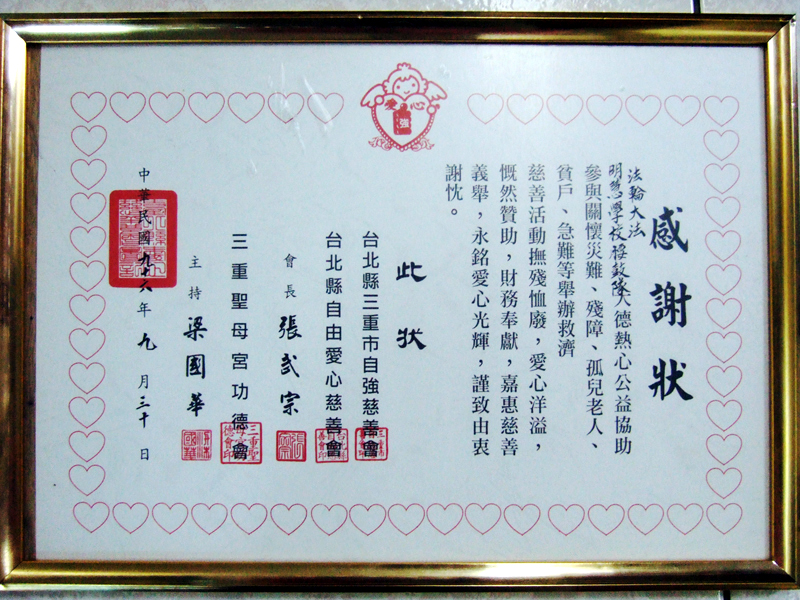 愛心
強
感謝狀
法輪大法
明慧學校腰鼓隊大德熱心公益協助
參與關懷災難、殘障、孤兒老人、
貧戶、急難等舉辦救濟
慈善活動撫殘恤廢，愛心洋溢，
慨然贊助，財務奉獻，嘉惠慈善
義舉，永銘愛心光輝，謹致由衷
謝忱。
此狀
台北縣三重市自強慈善會
台北縣自由愛心慈善會
會長 張貳宗
三重聖母宮功德會
主持 梁國華
中華民國九十六年九月三十日